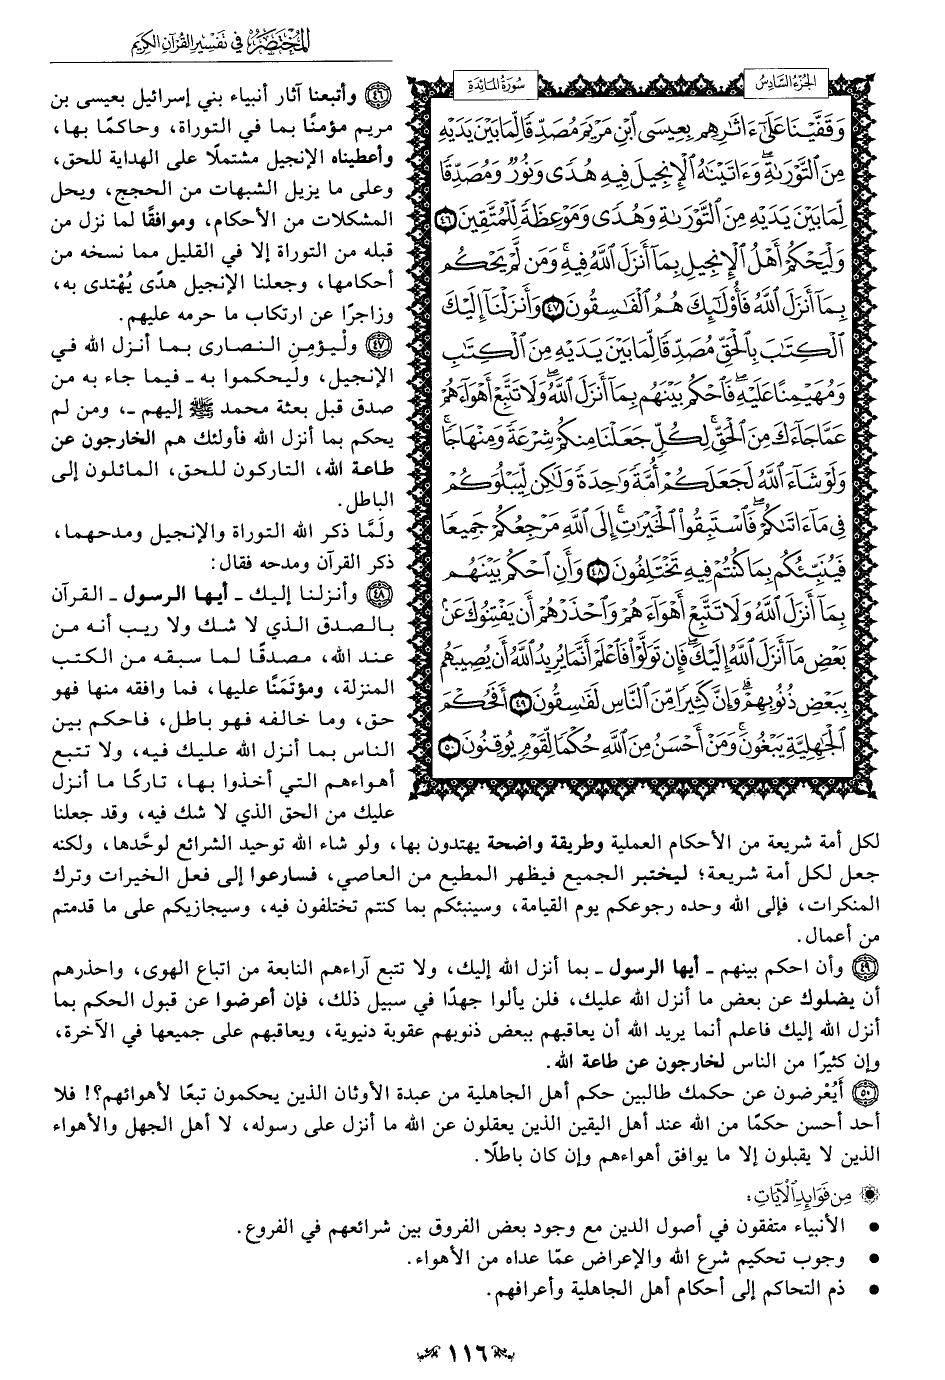 المختصر في تفسير القرآن الكريم
الجزء السادس
سورة المائدة
وَقَفَّيْنَا عَلَىٰٓ ءَاثَٰرِهِم بِعِيسَى ٱبْنِ مَرْيَمَ مُصَدِّقًا لِّمَا بَيْنَ يَدَيْهِ
مِنَ ٱلتَّوْرَىٰةِ ۖ وَءَاتَيْنَٰهُ ٱلْإِنجِيلَ فِيهِ هُدًى وَنُورٌ وَمُصَدِّقًا
لِّمَا بَيْنَ يَدَيْهِ مِنَ ٱلتَّوْرَىٰةِ وَهُدًى وَمَوْعِظَةً لِّلْمُتَّقِينَ ٤٦
وَلْيَحْكُمْ أَهْلُ ٱلْإِنجِيلِ بِمَآ أَنزَلَ ٱللَّهُ فِيهِ ۚ وَمَن لَّمْ يَحْكُم
بِمَآ أَنزَلَ ٱللَّهُ فَأُو۟لَٰٓئِكَ هُمُ ٱلْفَٰسِقُونَ ٤٧ وَأَنزَلْنَآ إِلَيْكَ
ٱلْكِتَٰبَ بِٱلْحَقِّ مُصَدِّقًا لِّمَا بَيْنَ يَدَيْهِ مِنَ ٱلْكِتَٰبِ
وَمُهَيْمِنًا عَلَيْهِ ۖ فَٱحْكُم بَيْنَهُم بِمَآ أَنزَلَ ٱللَّهُ ۖ وَلَا تَتَّبِعْ أَهْوَآءَهُمْ
عَمَّا جَآءَكَ مِنَ ٱلْحَقِّ ۚ لِكُلٍّ جَعَلْنَا مِنكُمْ شِرْعَةً وَمِنْهَاجًا ۚ
وَلَوْ شَآءَ ٱللَّهُ لَجَعَلَكُمْ أُمَّةً وَٰحِدَةً وَلَٰكِن لِّيَبْلُوَكُمْ
فِى مَآ ءَاتَىٰكُمْ ۖ فَٱسْتَبِقُوا۟ ٱلْخَيْرَٰتِ ۚ إِلَى ٱللَّهِ مَرْجِعُكُمْ جَمِيعًا
فَيُنَبِّئُكُم بِمَا كُنتُمْ فِيهِ تَخْتَلِفُونَ ٤٨ وَأَنِ ٱحْكُم بَيْنَهُم
بِمَآ أَنزَلَ ٱللَّهُ وَلَا تَتَّبِعْ أَهْوَآءَهُمْ وَٱحْذَرْهُمْ أَن يَفْتِنُوكَ عَنۢ
بَعْضِ مَآ أَنزَلَ ٱللَّهُ إِلَيْكَ ۖ فَإِن تَوَلَّوْا۟ فَٱعْلَمْ أَنَّمَا يُرِيدُ ٱللَّهُ أَن يُصِيبَهُم
بِبَعْضِ ذُنُوبِهِمْ ۗ وَإِنَّ كَثِيرًا مِّنَ ٱلنَّاسِ لَفَٰسِقُونَ ٤٩ أَفَحُكْمَ
ٱلْجَٰهِلِيَّةِ يَبْغُونَ ۚ وَمَنْ أَحْسَنُ مِنَ ٱللَّهِ حُكْمًا لِّقَوْمٍ يُوقِنُونَ ٥٠
٤٦ وأتبعنا آثار أنبياء بني إسرائيل بعيسى بن
مريم مؤمنًا بما في التوراة، وحاكمًا بها،
وأعطيناه الإنجيل مشتملًا على الهداية للحق،
وعلى ما يزيل الشبهات من الحجج، ويحل
المشكلات من الأحكام، وموافقًا لما نزل من
قبله من التوراة إلا في القليل مما نسخه من
أحكامها، وجعلنا الإنجيل هدًى يُهْتدى به،
وزاجرًا عن ارتكاب ما حرمه عليهم.
٤٧ ولْيؤمنِ النصارى بما أنزل الله في
الإنجيل، وليحكموا به ـ فيما جاء به من
صدق قبل بعثة محمد ﷺ إليهم ـ، ومن لم
يحكم بما أنزل الله فأولئك هم الخارجون عن
طاعة الله، التاركون للحق، المائلون إلى
الباطل.
ولَمَّا ذكر الله التوراة والإنجيل ومدحهما،
ذكر القرآن ومدحه فقال:
٤٨ وأنزلنا إليك ـ أيها الرسول ـ القرآن
بالصدق الذي لا شك ولا ريب أنه من
عند الله، مصدقًا لما سبقه من الكتب
المنزلة، ومؤتَمَنًا عليها، فما وافقه منها فهو
حق، وما خالفه فهو باطل، فاحكم بين
الناس بما أنزل الله عليك فيه، ولا تتبع
أهواءهم التي أخذوا بها، تاركًا ما أنزل
عليك من الحق الذي لا شك فيه، وقد جعلنا
لكل أمة شريعة من الأحكام العملية وطريقة واضحة يهتدون بها، ولو شاء الله توحيد الشرائع لوحَّدها، ولكنه
جعل لكل أمة شريعة؛ ليختبر الجميع فيظهر المطيع من العاصي، فسارعوا إلى فعل الخيرات وترك
المنكرات، فإلى الله وحده رجوعكم يوم القيامة، وسينبئكم بما كنتم تختلفون فيه، وسيجازيكم على ما قدمتم
من أعمال.
٤٩ وأن احكم بينهم ـ أيها الرسول ـ بما أنزل الله إليك، ولا تتبع آراءهم النابعة من اتباع الهوى، واحذرهم
أن يضلوك عن بعض ما أنزل الله عليك، فلن يألوا جهدًا في سبيل ذلك، فإن أعرضوا عن قبول الحكم بما
أنزل الله إليك فاعلم أنما يريد الله أن يعاقبهم ببعض ذنوبهم عقوبة دنيوية، ويعاقبهم على جميعها في الآخرة،
وإن كثيرًا من الناس لخارجون عن طاعة الله.
٥٠ أَيُعْرضون عن حكمك طالبين حكم أهل الجاهلية من عبدة الأوثان الذين يحكمون تبعًا لأهوائهم؟! فلا
أحد أحسن حكمًا من الله عند أهل اليقين الذين يعقلون عن الله ما أنزل على رسوله، لا أهل الجهل والأهواء
الذين لا يقبلون إلا ما يوافق أهواءهم وإن كان باطلًا.
من فوائد الآيات:
• الأنبياء متفقون في أصول الدين مع وجود بعض الفروق بين شرائعهم في الفروع.
• وجوب تحكيم شرع الله والإعراض عمّا عداه من الأهواء.
• ذم التحاكم إلى أحكام أهل الجاهلية وأعرافهم.
١١٦